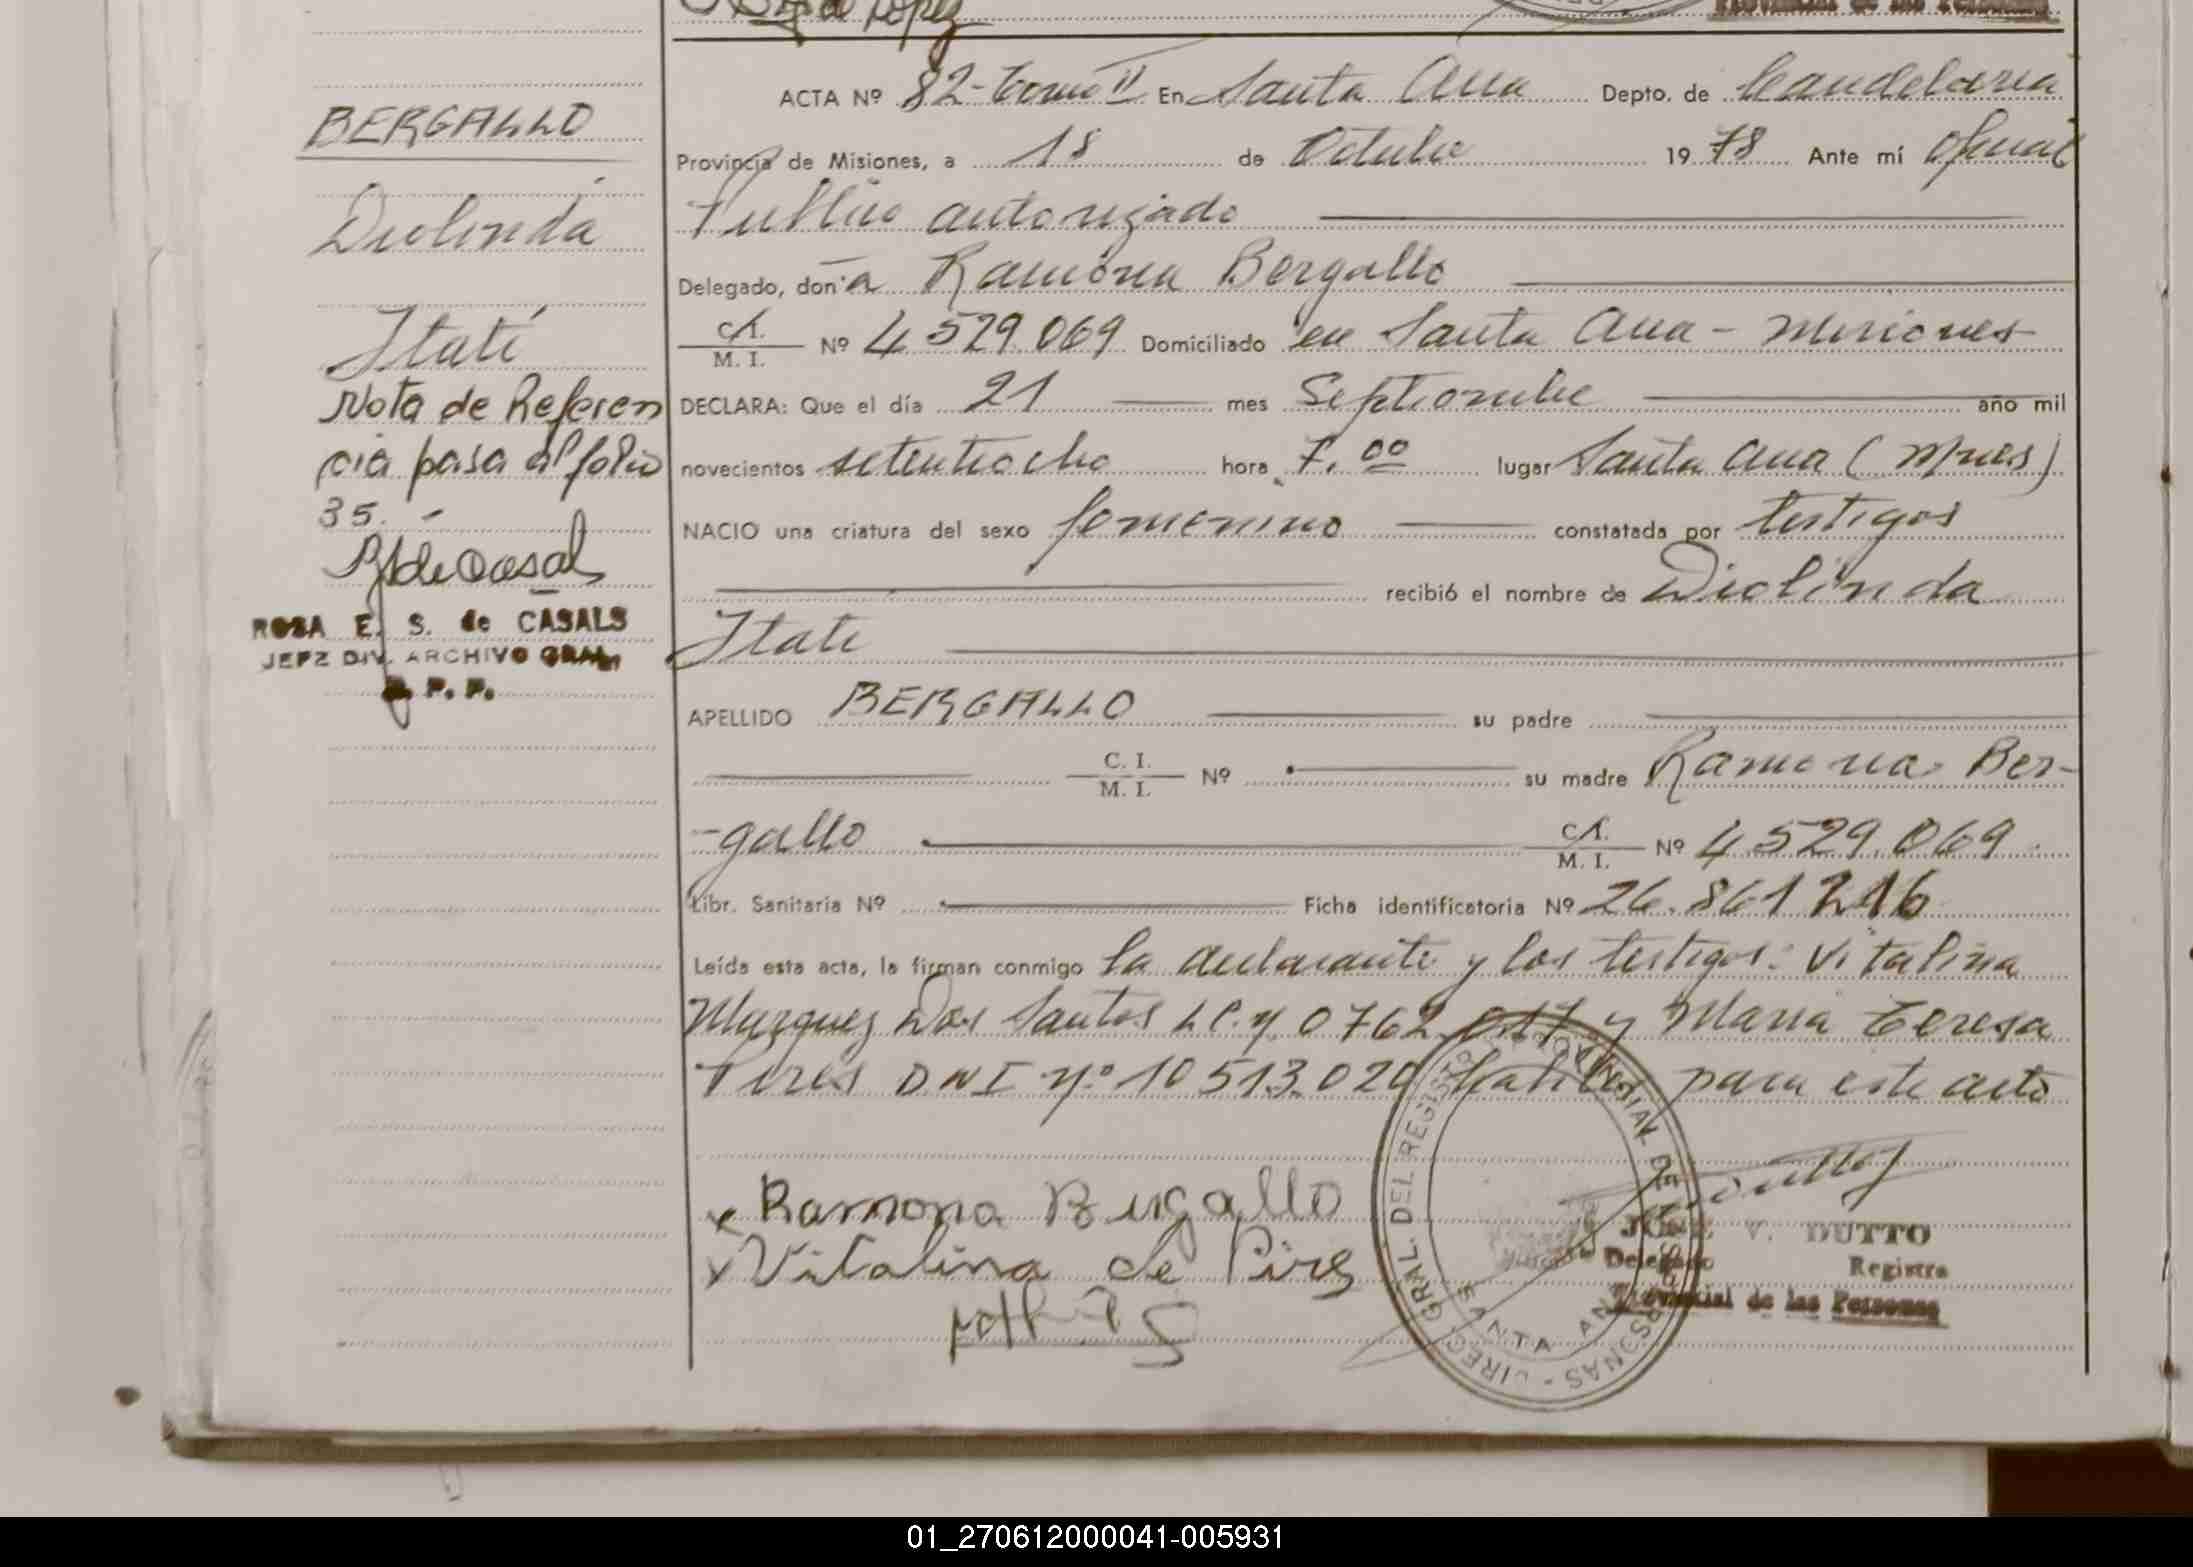 de López
Provincial de las Personas
BERGALLO
Diolinda
Itatí
Nota de Referen
cia pasa al folio
35. -
ROSA E. S. de CASALS
JEFE DIV. ARCHIVO GRAL.
R. P. P.
ACTA Nº 82-Tomo II En Santa Ana Depto. de Candelaria
Provincia de Misiones, a 18 de Octubre 1978 Ante mí Oficial
Publico autorizado
Delegado, don a Ramona Bergallo
C.I. M. I. Nº 4.529.069 Domiciliado en Santa Ana - Misiones
DECLARA: Que el día 21 mes Septiembre año mil
novecientos setentiocho hora 7.00 lugar Santa Ana (Mnes)
NACIO una criatura del sexo femenino constatada por testigos
recibió el nombre de Diolinda
Itati
APELLIDO BERGALLO su padre
C. I. M. I. Nº su madre Ramona Ber-
-gallo C.I. M. I. Nº 4.529.069
Libr. Sanitaria Nº Ficha identificatoria Nº 26.861216
Leída esta acta, la firman conmigo la declarante y los testigos: Vitalina
Marquez Dos Santos L.C. Nº 0762.017 y Maria Teresa
Pires DNI Nº 10513020 habiles para este acto
x Ramona Bergallo
x Vitalina de Pires
DIREC. GRAL. DEL REGISTRO PROVINCIAL DE LAS PERSONAS - SANTA ANA
JOSE V. DUTTO
Delegado Registro
Provincial de las Personas
01_270612000041-005931